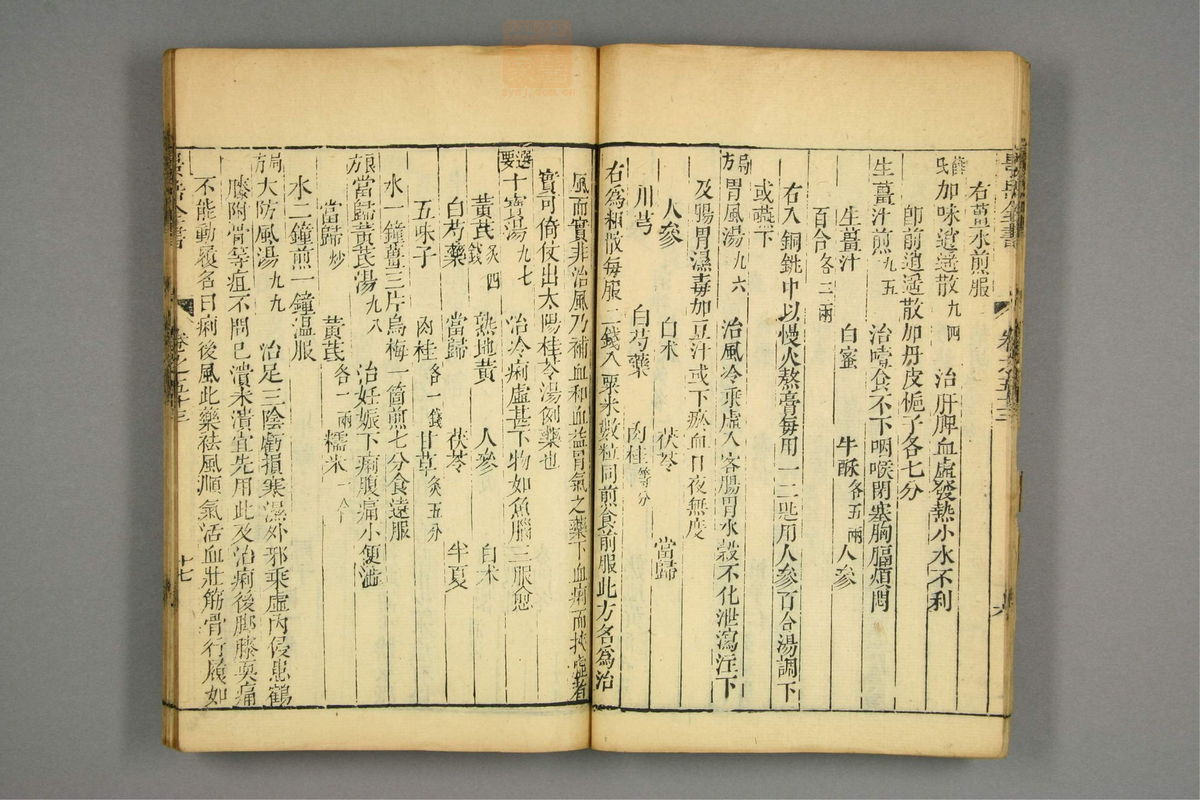 右薑水煎服
薛氏加味逍遥散九四　治肝脾血虛發熱小水不利
卽前逍遥散加丹皮梔子各七分
生薑汁煎九五　治噎食不下咽喉閉塞胸膈煩悶
生薑汁　白蜜　牛酥各五兩　人參
百合各二兩
右入銅銚中以慢火熬膏每用一二匙用人參百合湯調下
或嚥下
局方胃風湯九六　治風冷乘虛入客腸胃水穀不化泄瀉注下
及腸胃濕毒如豆汁或下瘀血日夜無度
人參　白朮　茯苓　當歸
川芎　白芍藥　肉桂等分
右爲粗散每服二錢入粟米數粒同煎食前服此方名爲治
風而實非治風乃補血和血益胃氣之藥下血痢而挾虛者
實可倚仗出太陽桂苓湯例藥也
選要十寶湯九七　治冷痢虛甚下物如魚腦三服愈
黃芪炙四錢　熟地黃　人參　白朮
白芍藥　當歸　茯苓　半夏
五味子　肉桂各一錢　甘草炙五分
水一鐘薑三片烏梅一箇煎七分食遠服
良方當歸黃芪湯九八　治妊娠下痢腹痛小便澁
當歸炒　黃芪各一兩　糯米一合
水二鐘煎一鐘溫服
局方大防風湯九九　治足三陰虧損寒濕外邪乘虛內侵患鶴
膝附骨等疽不問已潰未潰宜先用此及治痢後脚膝耎痛
不能動履名曰痢後風此藥祛風順氣活血壯筋骨行履如
卷之五十三
十七